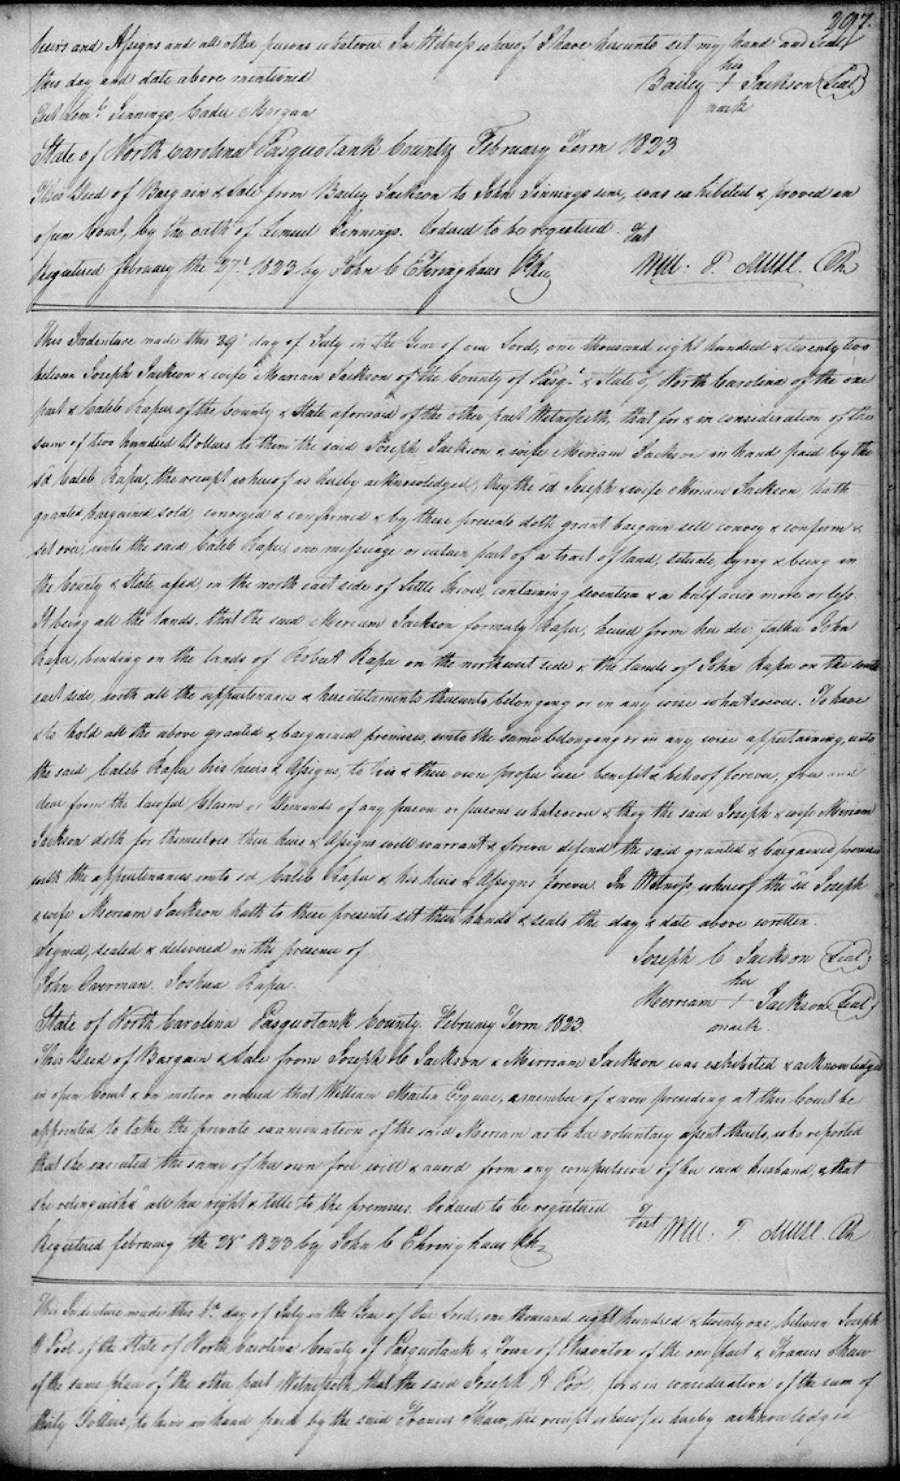 297.
heirs and Assigns and all other persons whatever In Witness whereof I have hereunto set my hand and Seal
this day and date above mentioned
his
Bailey + Jackson (Seal)
mark
Test Lem.l Jennings, Cader Morgan
State of North Carolina Pasquotank County February Term 1823
This Deed of Bargain & Sale from Bailey Jackson to John Jennings senr, was exhibited & proved in
open Court, by the oath of Lemuel Jennings. Ordered to be registered.
Test
Registered February the 27.t 1823 by John C Ehringhaus P. Reg
Will. T. Muse. Clk
This Indenture made this 29 day of July in the Year of our Lord, one thousand eight hundred & twenty two
between Joseph Jackson & wife Meriam Jackson of the County of Pasq.k & State of North Carolina of the one
part & Caleb Raper of the County & State aforesaid of the other part Witnesseth, that for & in consideration of the
sum of two hundred Dollars to them the said Joseph Jackson & wife Meriam Jackson in hand paid by the
sd. Caleb Raper, the receipt whereof is hereby acknowledged, they the sd Joseph & wife Meriam Jackson, hath
granted, bargained sold conveyed & confirmed & by these presents doth grant bargain sell convey & confirm &
set over, unto the said Caleb Raper, one messuage or certain part of a tract of land, situate, lying & being in
the County & State afsd, on the north east side of Little River, containing seventeen & a half acres more or less.
It being all the lands, that the said Meriam Jackson formerly Raper, heired from her dec. father John
Raper, binding on the lands of Robert Raper on the northwest side & the lands of John Raper on the south
east side, with all the appurtenances & hereditaments thereunto belonging or in any wise whatsoever. To have
& to hold all the above granted & bargained premises, unto the same belonging or in any wise appertaining, unto
the said Caleb Raper his heirs & Assigns, to his & their own proper use benefit & behoof forever, free and
clear from the lawful Claim or Demands of any person or persons whatsoever & they the said Joseph & wife Meriam
Jackson doth for themselves their heirs & Assigns will warrant & forever defend the said granted & bargained premises
with the appurtenances unto sd Caleb Raper & his heirs & Assigns forever. In Witness whereof the sd Joseph
& wife Meriam Jackson hath to these presents set their hands & seals the day & date above written.
Signed, sealed & delivered in the presence of
Joseph C Jackson (Seal)
John Overman. Joshua Raper.
her
Merriam + Jackson (Seal)
mark.
State of North Carolina Pasquotank County. February Term 1823.
This Deed of Bargain & Sale from Joseph C Jackson & Merriam Jackson was exhibited & acknowledged
in open Court & on motion ordered that William Martin Esquire, a member of & now presiding at this Court be
appointed to take the private examination of the said Meriam as to her voluntary assent thereto, who reported
that she executed the same of her own free will & accord from any compulsion of her said husband, & that
she relinquishd all her right & title to the premises. Ordered to be registered
Test
Registered February the 28 1823 by John C Ehringhaus P. R.
Will. T. Muse. Clk
This Indenture made this day of July in the Year of Our Lord, one thousand eight hundred & twenty one between Joseph
H Pool of the State of North Carolina County of Pasquotank & Town of Nixonton of the one part & Francis Shaw
of the same place of the other part Witnesseth, that the said Joseph H Poo for & in consideration of the sum of
thirty Dollars, to him in hand paid by the said Francis Shaw, the receipt whereof is hereby acknowledged